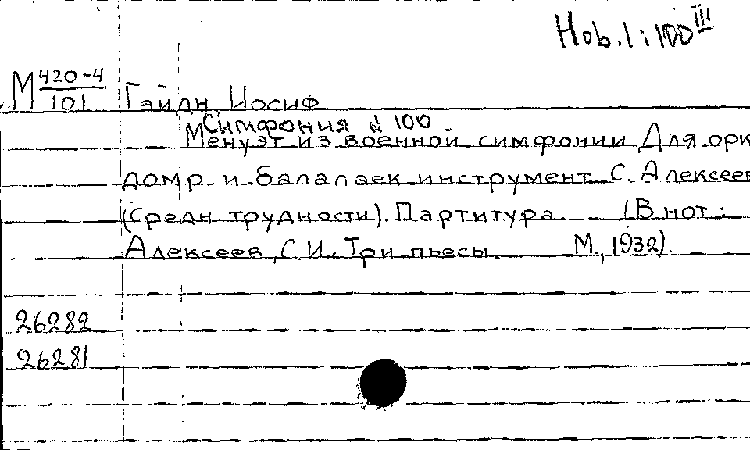 Hob. I: 100 III
М 420-4
101
Гайдн Иосиф
Симфония № 100
Менуэт из военной симфонии Для орк
домр и балалаек инструмент С. Алексеев
(средн трудности). Партитура. (В нот:
Алексеев, С И. Три пьесы. М., 1932).
26282
26281